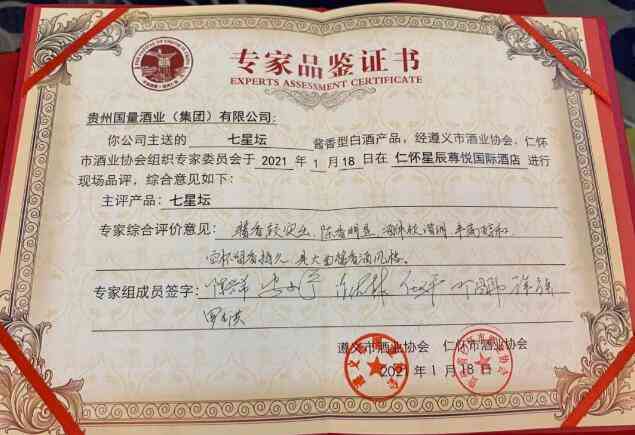 专家品鉴证书
EXPERTS ASSESSMENT CERTIFICATE
贵州国量酒业（集团）有限公司：
你公司主送的 七星坛 酱香型白酒产品，经遵义市酒业协会、仁怀
市酒业协会组织专家委员会于 2021 年 1 月 18 日在 仁怀星辰尊悦国际酒店 进行
现场品评，综合意见如下：
主评产品：七星坛
专家综合评价意见：酱香较突出、陈香明显、
空杯留香持久、具大曲酱香酒风格。
专家组成员签字：
遵义市酒业协会 仁怀市酒业协会
2021年1月18日